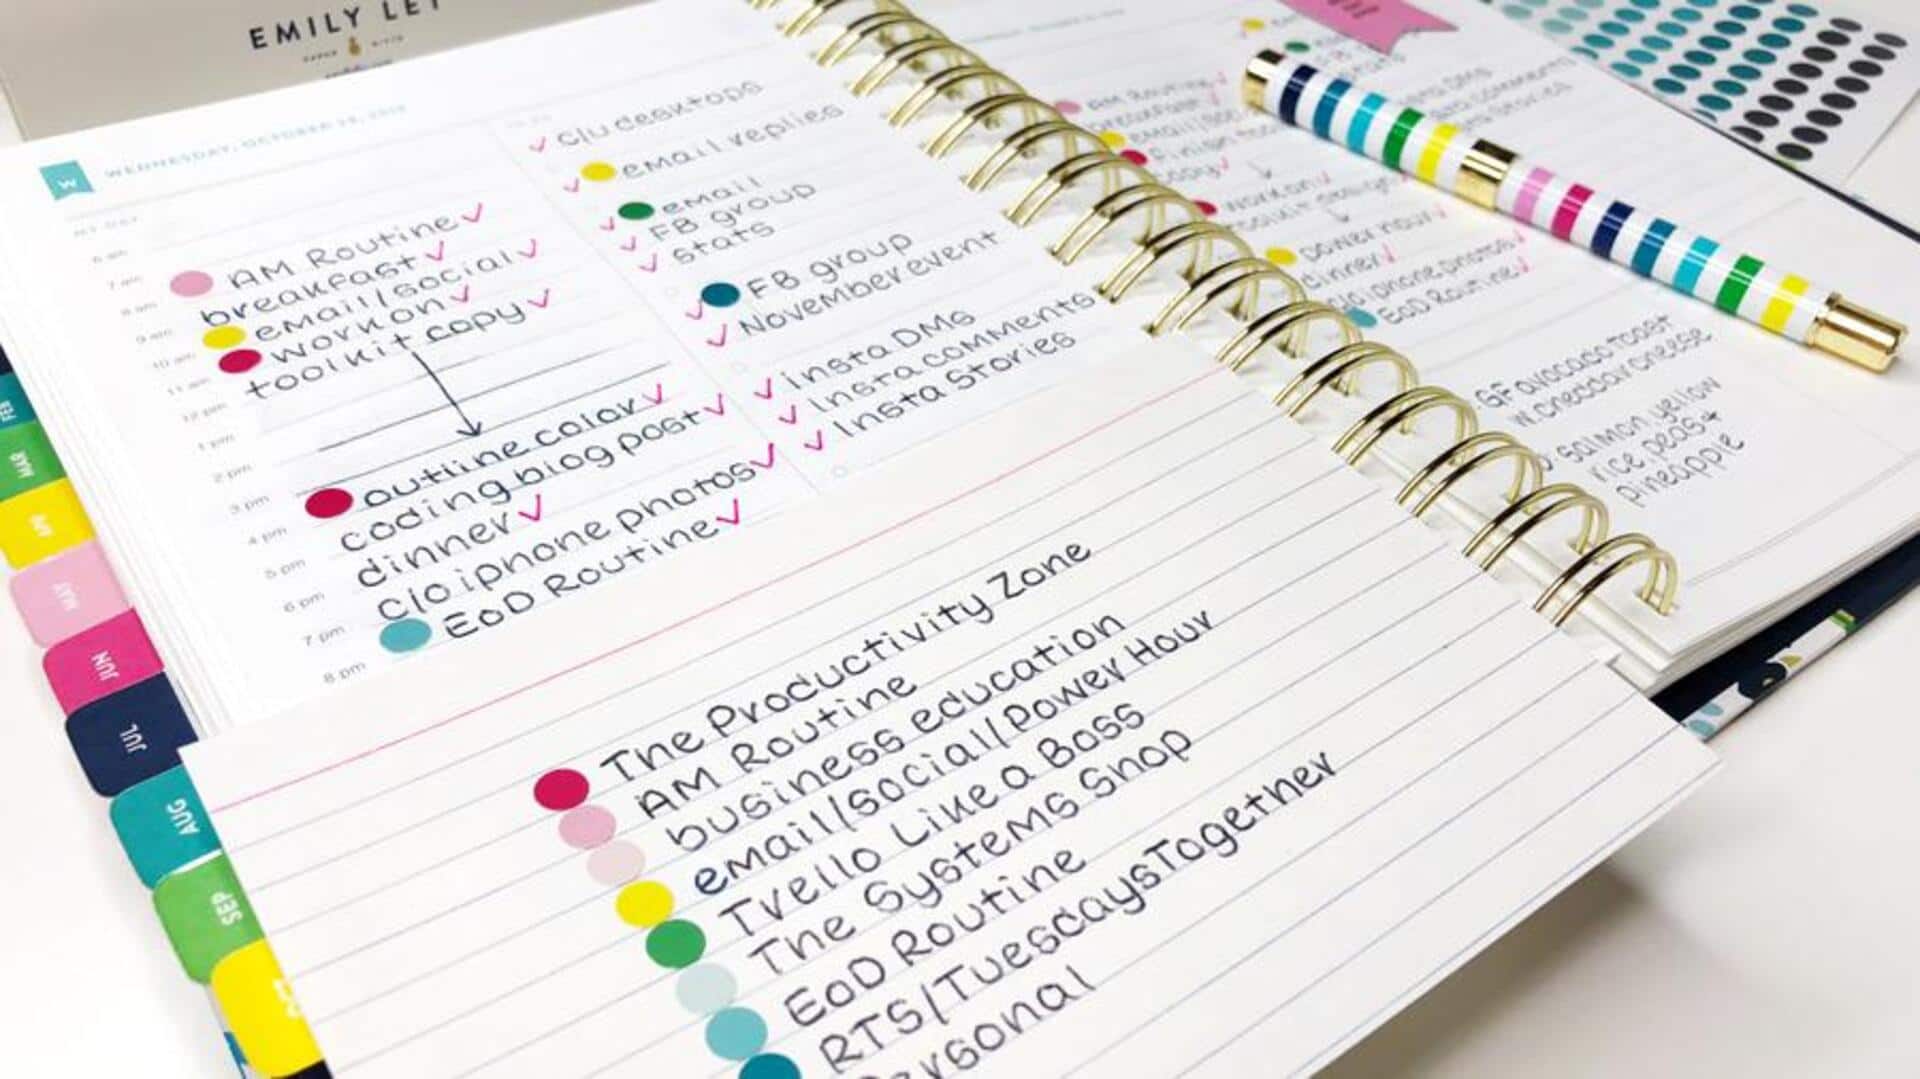 EMILY LEY
W
WEDNESDAY, OCTOBER
6 am
7 am
8 am
9 am
10 am
11 am
12 pm
1 pm
2 pm
3 pm
4 pm
5 pm
6 pm
7 pm
8 pm
AM Routine
breakfast
email/social
work on
toolkit copy
outline color
coding blog post
dinner
c/o iphone photos
EoD Routine
c/u desktops
email replies
email
FB group
stats
FB group
November event
insta DMs
insta comments
Insta Stories
AM Routine
breakfast
copy
work on
power hour
dinner
c/o iphone photos
EoD Routine
GF avocado toast
w cheddar cheese
salmon yellow
rice peas +
pineapple
FEB
MAR
APR
MAY
JUN
JUL
AUG
SEP
The Productivity Zone
AM Routine
business education
email/social/Power Hour
Trello Like a Boss
The Systems Shop
EoD Routine
RTS/TuesdaysTogether
Personal